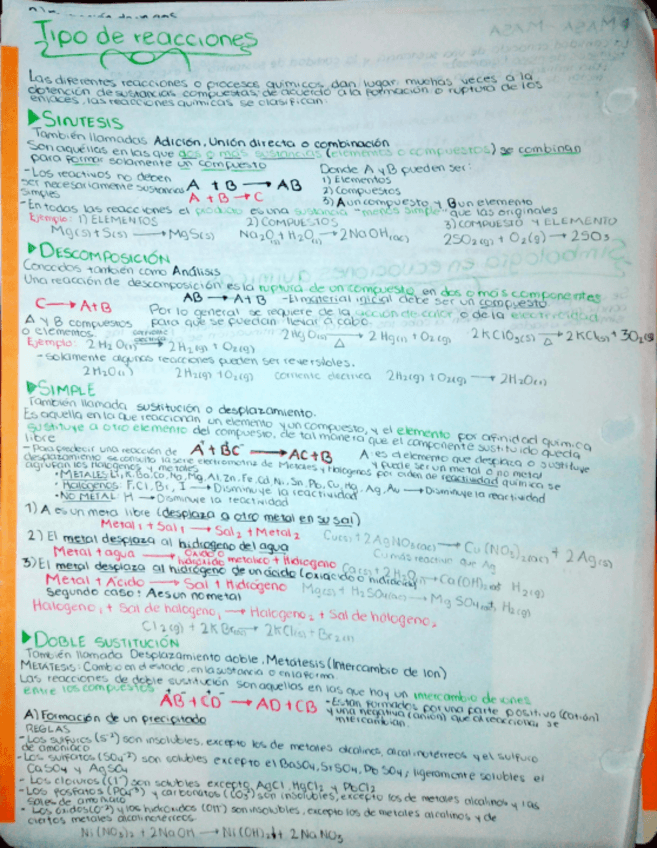 Tipo de reacciones
Las diferentes reacciones o procesos químicos dan lugar muchas veces a la
obtención de sustancias compuestas, de acuerdo a la formación o ruptura de los
enlaces, las reacciones químicas se clasifican:
SINTESIS
También llamadas Adición, Unión directa o combinación
Son aquéllas en las que dos o más sustancias (elementos o compuestos) se combinan
para formar solamente un compuesto
Donde A y B pueden ser:
-Los reactivos no deben
ser necesariamente sustancias
simples
A + B → AB
A + B → C
1) Elementos
2) Compuestos
3) A un compuesto y B un elemento
-En todas las reacciones el producto es una sustancia "menos simple" que las originales
Ejemplo: 1) ELEMENTOS 2) COMPUESTOS 3) COMPUESTO Y ELEMENTO
Mg(s) + S(s) → MgS(s) Na2O(s) + H2O(l) → 2NaOH(ac) 2SO2(g) + O2(g) → 2SO3
DESCOMPOSICIÓN
Conocidas también como Análisis
Una reacción de descomposición es la ruptura de un compuesto en dos o más componentes
AB → A + B -El material inicial debe ser un compuesto
C → A + B
Por lo general se requiere de la acción de calor o de la electricidad
A y B compuestos para que se puedan llevar a cabo.
o elementos
2HgO(s) → 2Hg(l) + O2(g) 2KClO3(s) → 2KCl(s) + 3O2(g)
Ejemplo: 2H2O(l) → 2H2(g) + O2(g)
-Solamente algunas reacciones pueden ser reversibles.
2H2O(l) 2H2(g) + O2(g) corriente electrica 2H2(g) + O2(g) → 2H2O(l)
SIMPLE
También llamada sustitución o desplazamiento.
Es aquella en la que reaccionan un elemento y un compuesto, y el elemento por afinidad química
sustituye a otro elemento del compuesto, de tal manera que el componente sustituido queda
libre
A + BC → AC + B
A es el elemento que desplaza o sustituye
y puede ser un metal o no metal
-Para predecir una reacción de
desplazamiento se consulta la serie electromotriz de Metales y Halogenos por orden de reactividad química se
agrupan los halogenos y metales
•METALES Li, K, Ba, Ca, Na, Mg, Al, Zn, Fe, Cd, Ni, Sn, Pb, Cu, Hg, Ag, Au → Disminuye la reactividad
•Halógenos: F, Cl, Br, I → Disminuye la reactividad
•NO METAL: H → Disminuye la reactividad
1) A es un metal libre (desplaza a otro metal en su sal)
Metal1 + Sal1 → Sal2 + Metal2
Cu(s) + 2AgNO3(ac) → Cu(NO3)2(ac) + 2Ag(s)
2) El metal desplaza al hidrogeno del agua
Cu más reactivo que Ag
Metal + agua → Oxido o hidróxido metálico + Hidrogeno
Ca(s) + 2H2O → Ca(OH)2 H2(g)
3) El metal desplaza al hidrógeno de un ácido (oxiacido o hidracido)
Metal + Ácido → Sal + Hidrógeno
Mg(s) + H2SO4(ac) → MgSO4 H2(g)
Segundo caso: A es un no metal
Halogeno1 + Sal de halogeno1 → Halogeno2 + Sal de halogeno2
Cl2(g) + 2KBr → 2KCl + Br2
DOBLE SUSTITUCIÓN
También llamada Desplazamiento doble, Metatesis (Intercambio de Ion)
METATESIS: Cambio en el estado, en la sustancia o en la forma
Las reacciones de doble sustitución son aquellas en las que hay un intercambio de iones
entre los compuestos
AB + CD → AD + CB
-Están formados por una parte positiva (catión)
y una negativa (anión) que al reaccionar se
intercambian.
A) Formación de un precipitado
REGLAS
-Los sulfuros (S-2) son insolubles, excepto los de metales alcalinos, alcalinotérreos y el sulfuro
de amoniaco
-Los sulfatos (SO4-2) son solubles excepto el BaSO4, SrSO4, PbSO4; ligeramente solubles el
CaSO4 y AgSO4
-Los cloruros (Cl-) son solubles excepto AgCl, HgCl2 y PbCl2
-Los fosfatos (PO4-3) y carbonatos (CO3) son insolubles, excepto los de metales alcalinos y las
sales de amoniaco
-Los óxidos (O-2) y los hidroxidos (OH-) son insolubles, excepto los de metales alcalinos y de
ciertos metales alcalinotérreos.
Ni(NO3)2 + 2NaOH → Ni(OH)2↓ + 2NaNO3